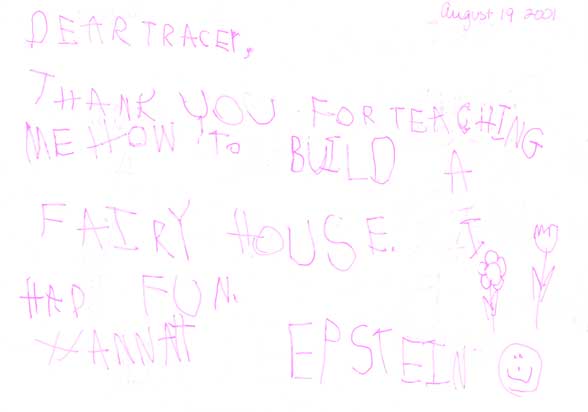 August 19 2001
DEAR TRACEY,
THANK YOU FOR TEACHING
ME HOW TO BUILD A
FAIRY HOUSE. I
HAD FUN.
HANNAH EPSTEIN